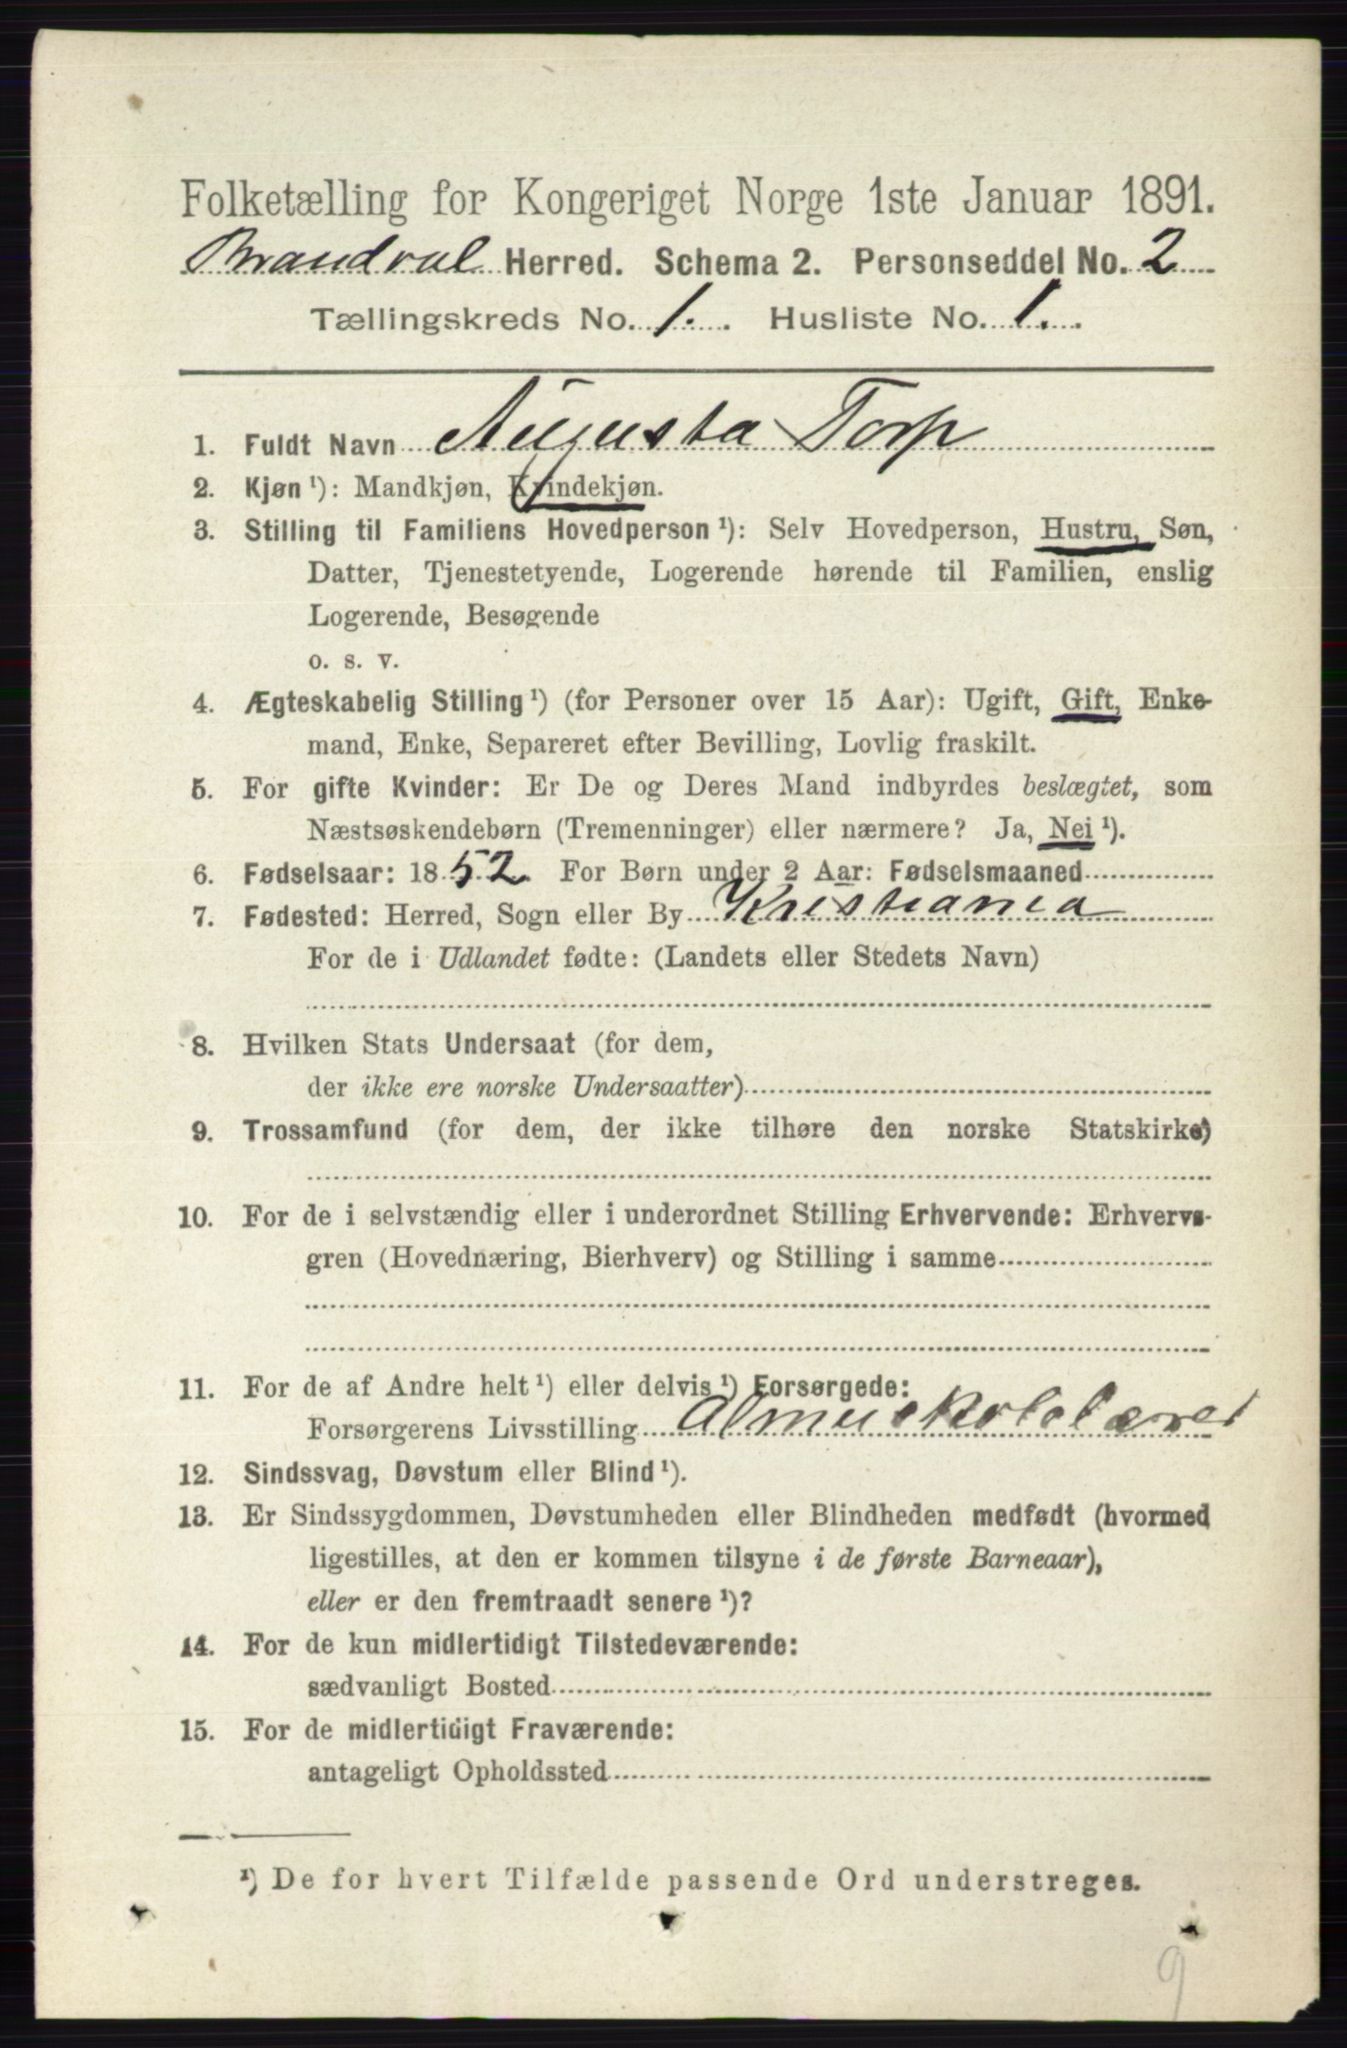 Folketælling for Kongeriget Norge 1ste Januar 1891.
Brandval Herred. Schema 2. Personseddel No. 2
Tællingskreds No. 1. Husliste No. 1.
1. Fuldt Navn Augusta Torp
2. Kjøn ¹): Mandkjøn, Kvindekjøn.
3. Stilling til Familiens Hovedperson ¹): Selv Hovedperson, Hustru, Søn,
Datter, Tjenestetyende, Logerende hørende til Familien, enslig
Logerende, Besøgende
o. s. v.
4. Ægteskabelig Stilling ¹) (for Personer over 15 Aar): Ugift, Gift, Enke-
mand, Enke, Separeret efter Bevilling, Lovlig fraskilt.
5. For gifte Kvinder: Er De og Deres Mand indbyrdes beslægtet, som
Næstsøskendebørn (Tremenninger) eller nærmere? Ja, Nei ¹).
6. Fødselsaar: 1852 For Børn under 2 Aar: Fødselsmaaned
7. Fødested: Herred, Sogn eller By Kristiania
For de i Udlandet fødte: (Landets eller Stedets Navn)
8. Hvilken Stats Undersaat (for dem,
der ikke ere norske Undersaatter)
9. Trossamfund (for dem, der ikke tilhøre den norske Statskirke)
10. For de i selvstændig eller i underordnet Stilling Erhvervende: Erhvervs-
gren (Hovednæring, Bierhverv) og Stilling i samme
11. For de af Andre helt ¹) eller delvis ¹) Forsørgede:
Forsørgerens Livsstilling Almueskolelærer
12. Sindssvag, Døvstum eller Blind ¹).
13. Er Sindssygdommen, Døvstumheden eller Blindheden medfødt (hvormed
ligestilles, at den er kommen tilsyne i de første Barneaar),
eller er den fremtraadt senere ¹)?
14. For de kun midlertidigt Tilstedeværende:
sædvanligt Bosted
15. For de midlertidigt Fraværende:
antageligt Opholdssted
¹) De for hvert Tilfælde passende Ord understreges.
9